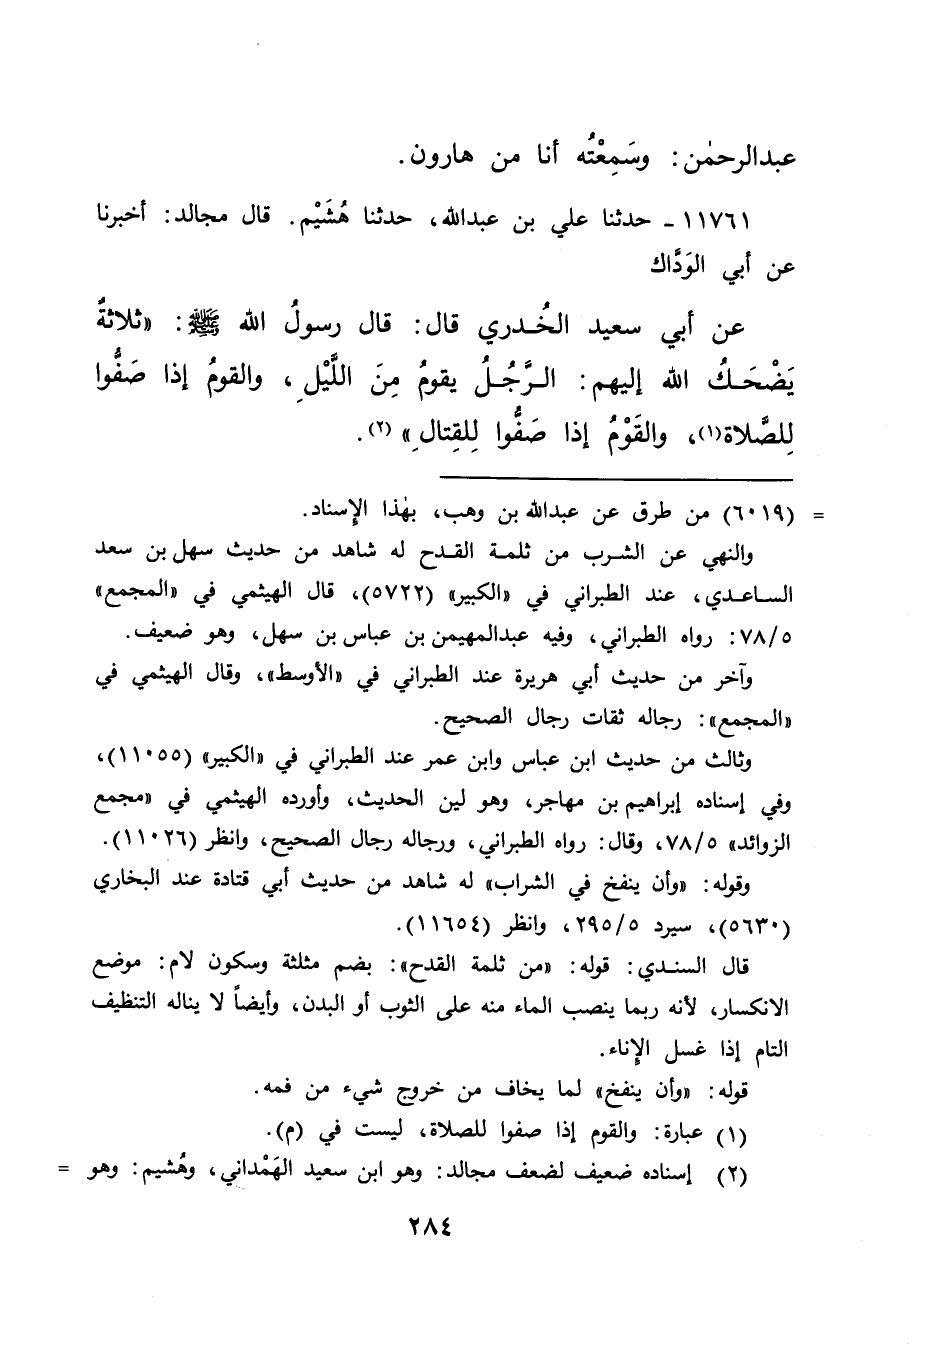 عبدالرحمٰن: وسَمِعْتُه أنا من هارون.
١١٧٦١ ـ حدثنا علي بن عبدالله، حدثنا هُشَيْم. قال مجالد: أخبرنا
عن أبي الوَدَّاك
عن أبي سعيد الخُدري قال: قال رسولُ الله ﷺ: «ثلاثةٌ
يَضْحَكُ الله إليهم: الرَّجُلُ يقومُ مِنَ اللَّيْلِ، والقومُ إذا صَفُّوا
لِلصَّلاة(١)، والقَوْمُ إذا صَفُّوا لِلقِتالِ»(٢).
= (٦٠١٩) من طرق عن عبدالله بن وهب، بهٰذا الإسناد.
والنهي عن الشرب من ثلمة القدح له شاهد من حديث سهل بن سعد
الساعدي، عند الطبراني في «الكبير» (٥٧٢٢)، قال الهيثمي في «المجمع»
٧٨/٥: رواه الطبراني، وفيه عبدالمهيمن بن عباس بن سهل، وهو ضعيف.
وآخر من حديث أبي هريرة عند الطبراني في «الأوسط»، وقال الهيثمي في
«المجمع»: رجاله ثقات رجال الصحيح.
وثالث من حديث ابن عباس وابن عمر عند الطبراني في «الكبير» (١١٠٥٥)،
وفي إسناده إبراهيم بن مهاجر، وهو لين الحديث، وأورده الهيثمي في «مجمع
الزوائد» ٧٨/٥، وقال: رواه الطبراني، ورجاله رجال الصحيح، وانظر (١١٠٢٦).
وقوله: «وأن ينفخ في الشراب» له شاهد من حديث أبي قتادة عند البخاري
(٥٦٣٠)، سيرد ٢٩٥/٥، وانظر (١١٦٥٤).
قال السندي: قوله: «من ثلمة القدح»: بضم مثلثة وسكون لام: موضع
الانكسار، لأنه ربما ينصب الماء منه على الثوب أو البدن، وأيضاً لا يناله التنظيف
التام إذا غسل الإناء.
قوله: «وأن ينفخ» لما يخاف من خروج شيء من فمه.
(١) عبارة: والقوم إذا صفوا للصلاة، ليست في (م).
(٢) إسناده ضعيف لضعف مجالد: وهو ابن سعيد الهَمْداني، وهُشيم: وهو =
٢٨٤